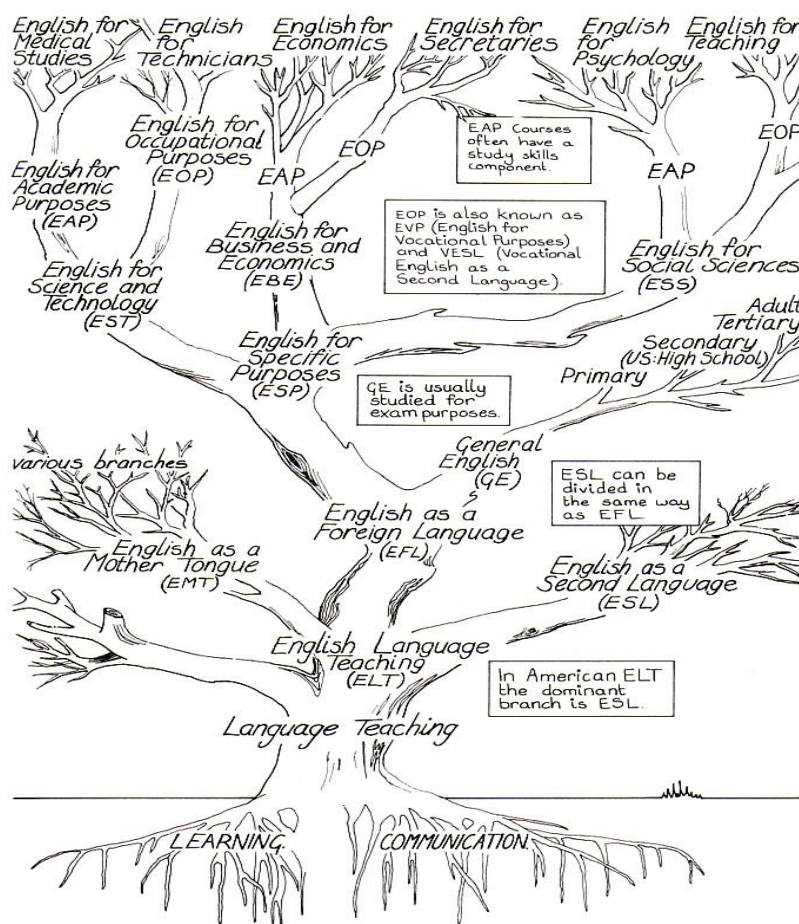 English for
Medical
Studies
English
for
Technicians
English for
Economics
English for
Secretaries
English
for
Psychology
English for
Teaching
English for
Occupational
Purposes
(EOP)
English for
Academic
Purposes
(EAP)
EAP
EOP
EAP Courses
often have a
study skills
component.
EAP
EOP
English for
Business and
Economics
(EBE)
EOP is also known as
EVP (English for
Vocational Purposes)
and VESL (Vocational
English as a
Second Language).
English for
Social Sciences
(ESS)
English for
Science and
Technology
(EST)
English for
Specific
Purposes
(ESP)
Adult
Tertiary
Secondary
(US:High School)
Primary
GE is usually
studied for
exam purposes.
General
English
(GE)
various branches
ESL can be
divided in
the same way
as EFL.
English as a
Foreign Language
(EFL)
English as a
Mother Tongue
(EMT)
English as a
Second Language
(ESL)
English Language
Teaching
(ELT)
In American ELT
the dominant
branch is ESL.
Language Teaching
LEARNING.
COMMUNICATION.